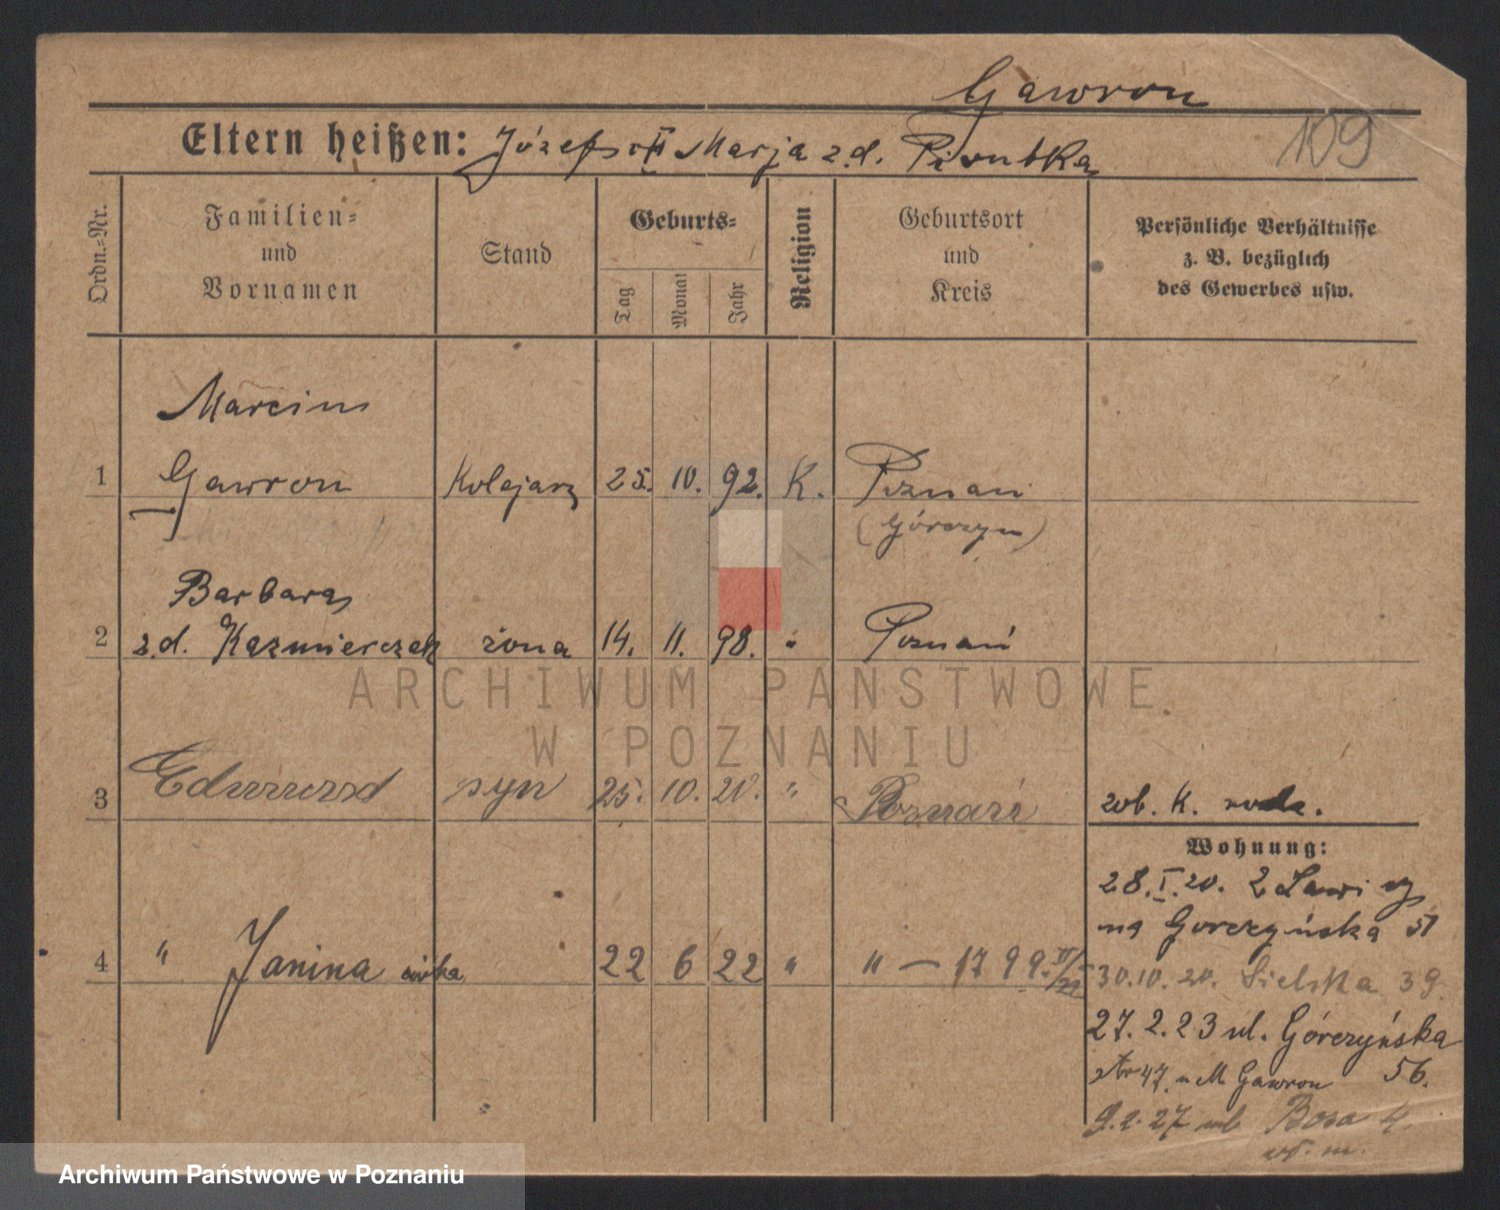 Gawron
109
Eltern heißen: Józef Marja z.d. Piontka
Ordn.-Nr.
Familien-
und
Vornamen
Stand
Geburts-
Tag
Monat
Jahr
Religion
Geburtsort
und
Kreis
Persönliche Verhältnisse
z. B. bezüglich
des Gewerbes usw.
Marcin
1 Gawron Kolejarz 25. 10. 92. K. Poznań
(Górczyn)
Barbara
2 z.d. Kazmierczak żona 14. 11. 98. " Poznań
3 Edward syn 25. 10. 20. " Poznań zob. K. rodz.
Wohnung:
28.I.20. Z Ławicy
na Gorczyńska 51
4 " Janina córka 22 6 22 " " — 1799
30.10.20. Sielska 39.
27.2.23 ul. Górczyńska
56.
str 47 u M Gawron
9.2.27 Bosa 4
ARCHIWUM PAŃSTWOWE
W POZNANIU
Archiwum Państwowe w Poznaniu